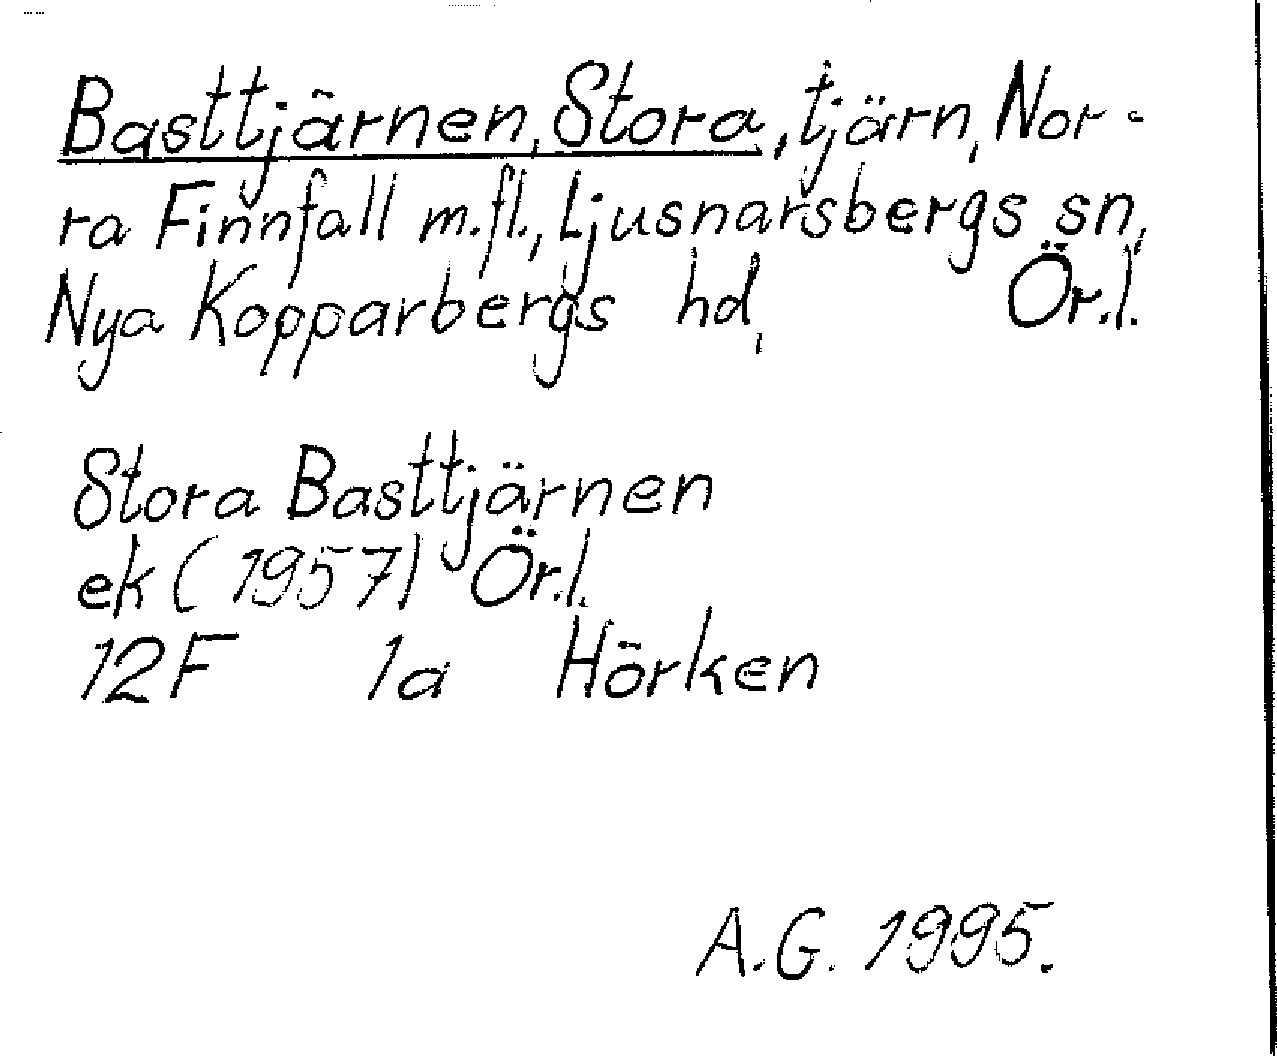 Basttjärnen, Stora, tjärn, Nor-
ra Finnfall m.fl., Ljusnarsbergs sn,
Nya Kopparbergs hd, Ör.l.
Stora Basttjärnen
ek (1957) Ör.l.
12F 1a Hörken
A.G. 1995.